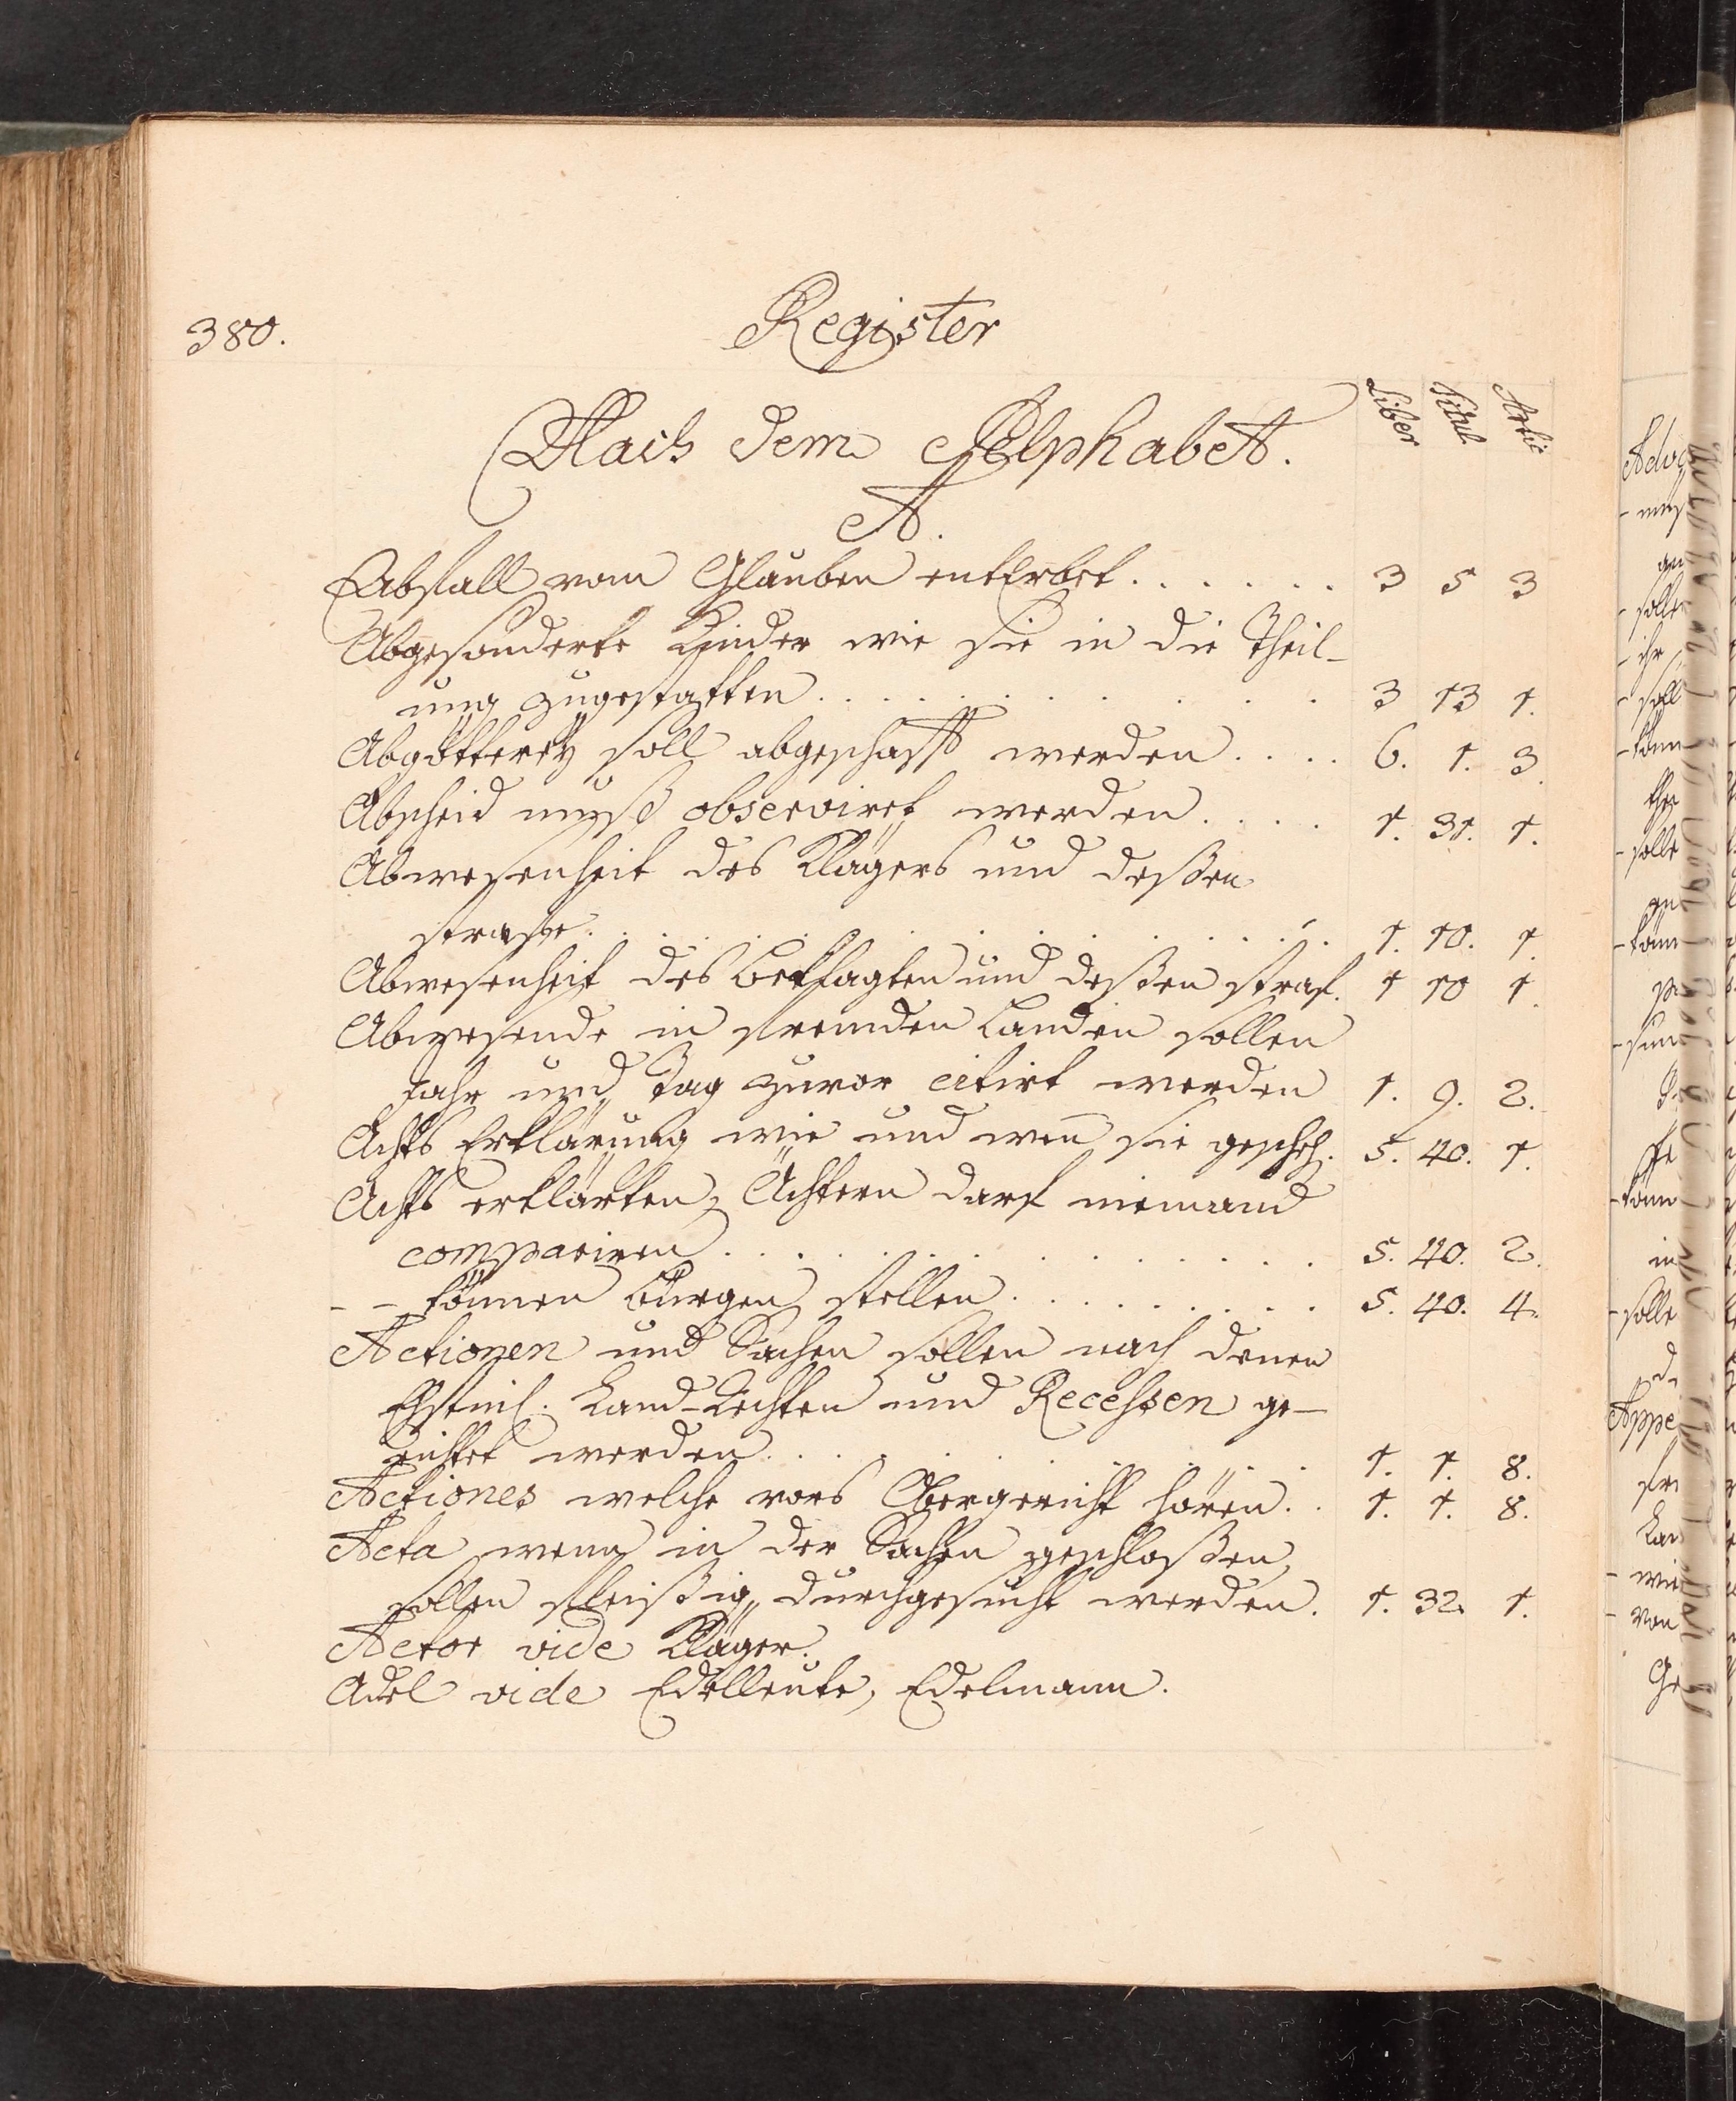 380.
Register
Liber Titul Artic
Nach dem Alphabet.
A.
Abfall vom Glauben entErbet. . . . . . . 3 5 3
Abgesonderte Kinder wie sie in die Theil-
ung zugestatten . . . . . . . . . . 3 13 1.
Abgötterey soll abgeschafft werden . . . . 6. 1. 3.
Abscheid muß observiret werden . . . . 1. 31. 1.
Abwesenheit des Klägers und deßen
straffe . . . . . . . . . . . . . . 1. 10. 1.
Abwesenheit des Beklagten und deßen straf. 1 10 1.
Abwesende in fremden Landen sollen
Jahr und Tag zuvor citirt werden 1. 9. 2.
Achts Erklärung wie und wen̄ sie gescheh. 5. 40. 1.
Achts erklärten, Ächtern darf niemand
compariren . . . . . . . . . . . 5. 40. 2.
- - können Bürgen stellen . . . . . . . . . 5. 40. 4.
Actionen und Sachen sollen nach denen
Ehstnis. Land-Rechten und Recessen ge-
richtet werden . . . . . . . . . . 1. 1. 8.
Actiones welche vors Obergericht hören. . 1. 1. 8.
Acta wenn in der Sachen geschloßen,
sollen fleißig durchgesucht werden. 1. 32. 1.
Actor vide Kläger.
Adel vide Edelleute, Edelmann.